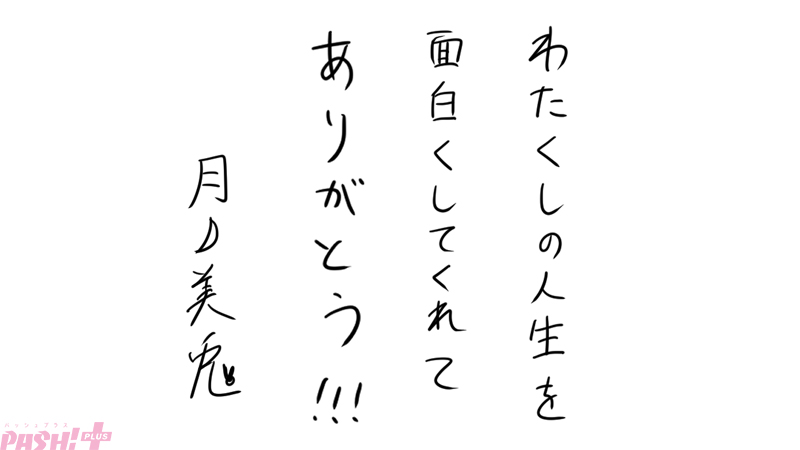 わたくしの人生を
面白くしてくれて
ありがとう!!!
月ノ美兎
パッシュプラス
PASH!+
PLUS